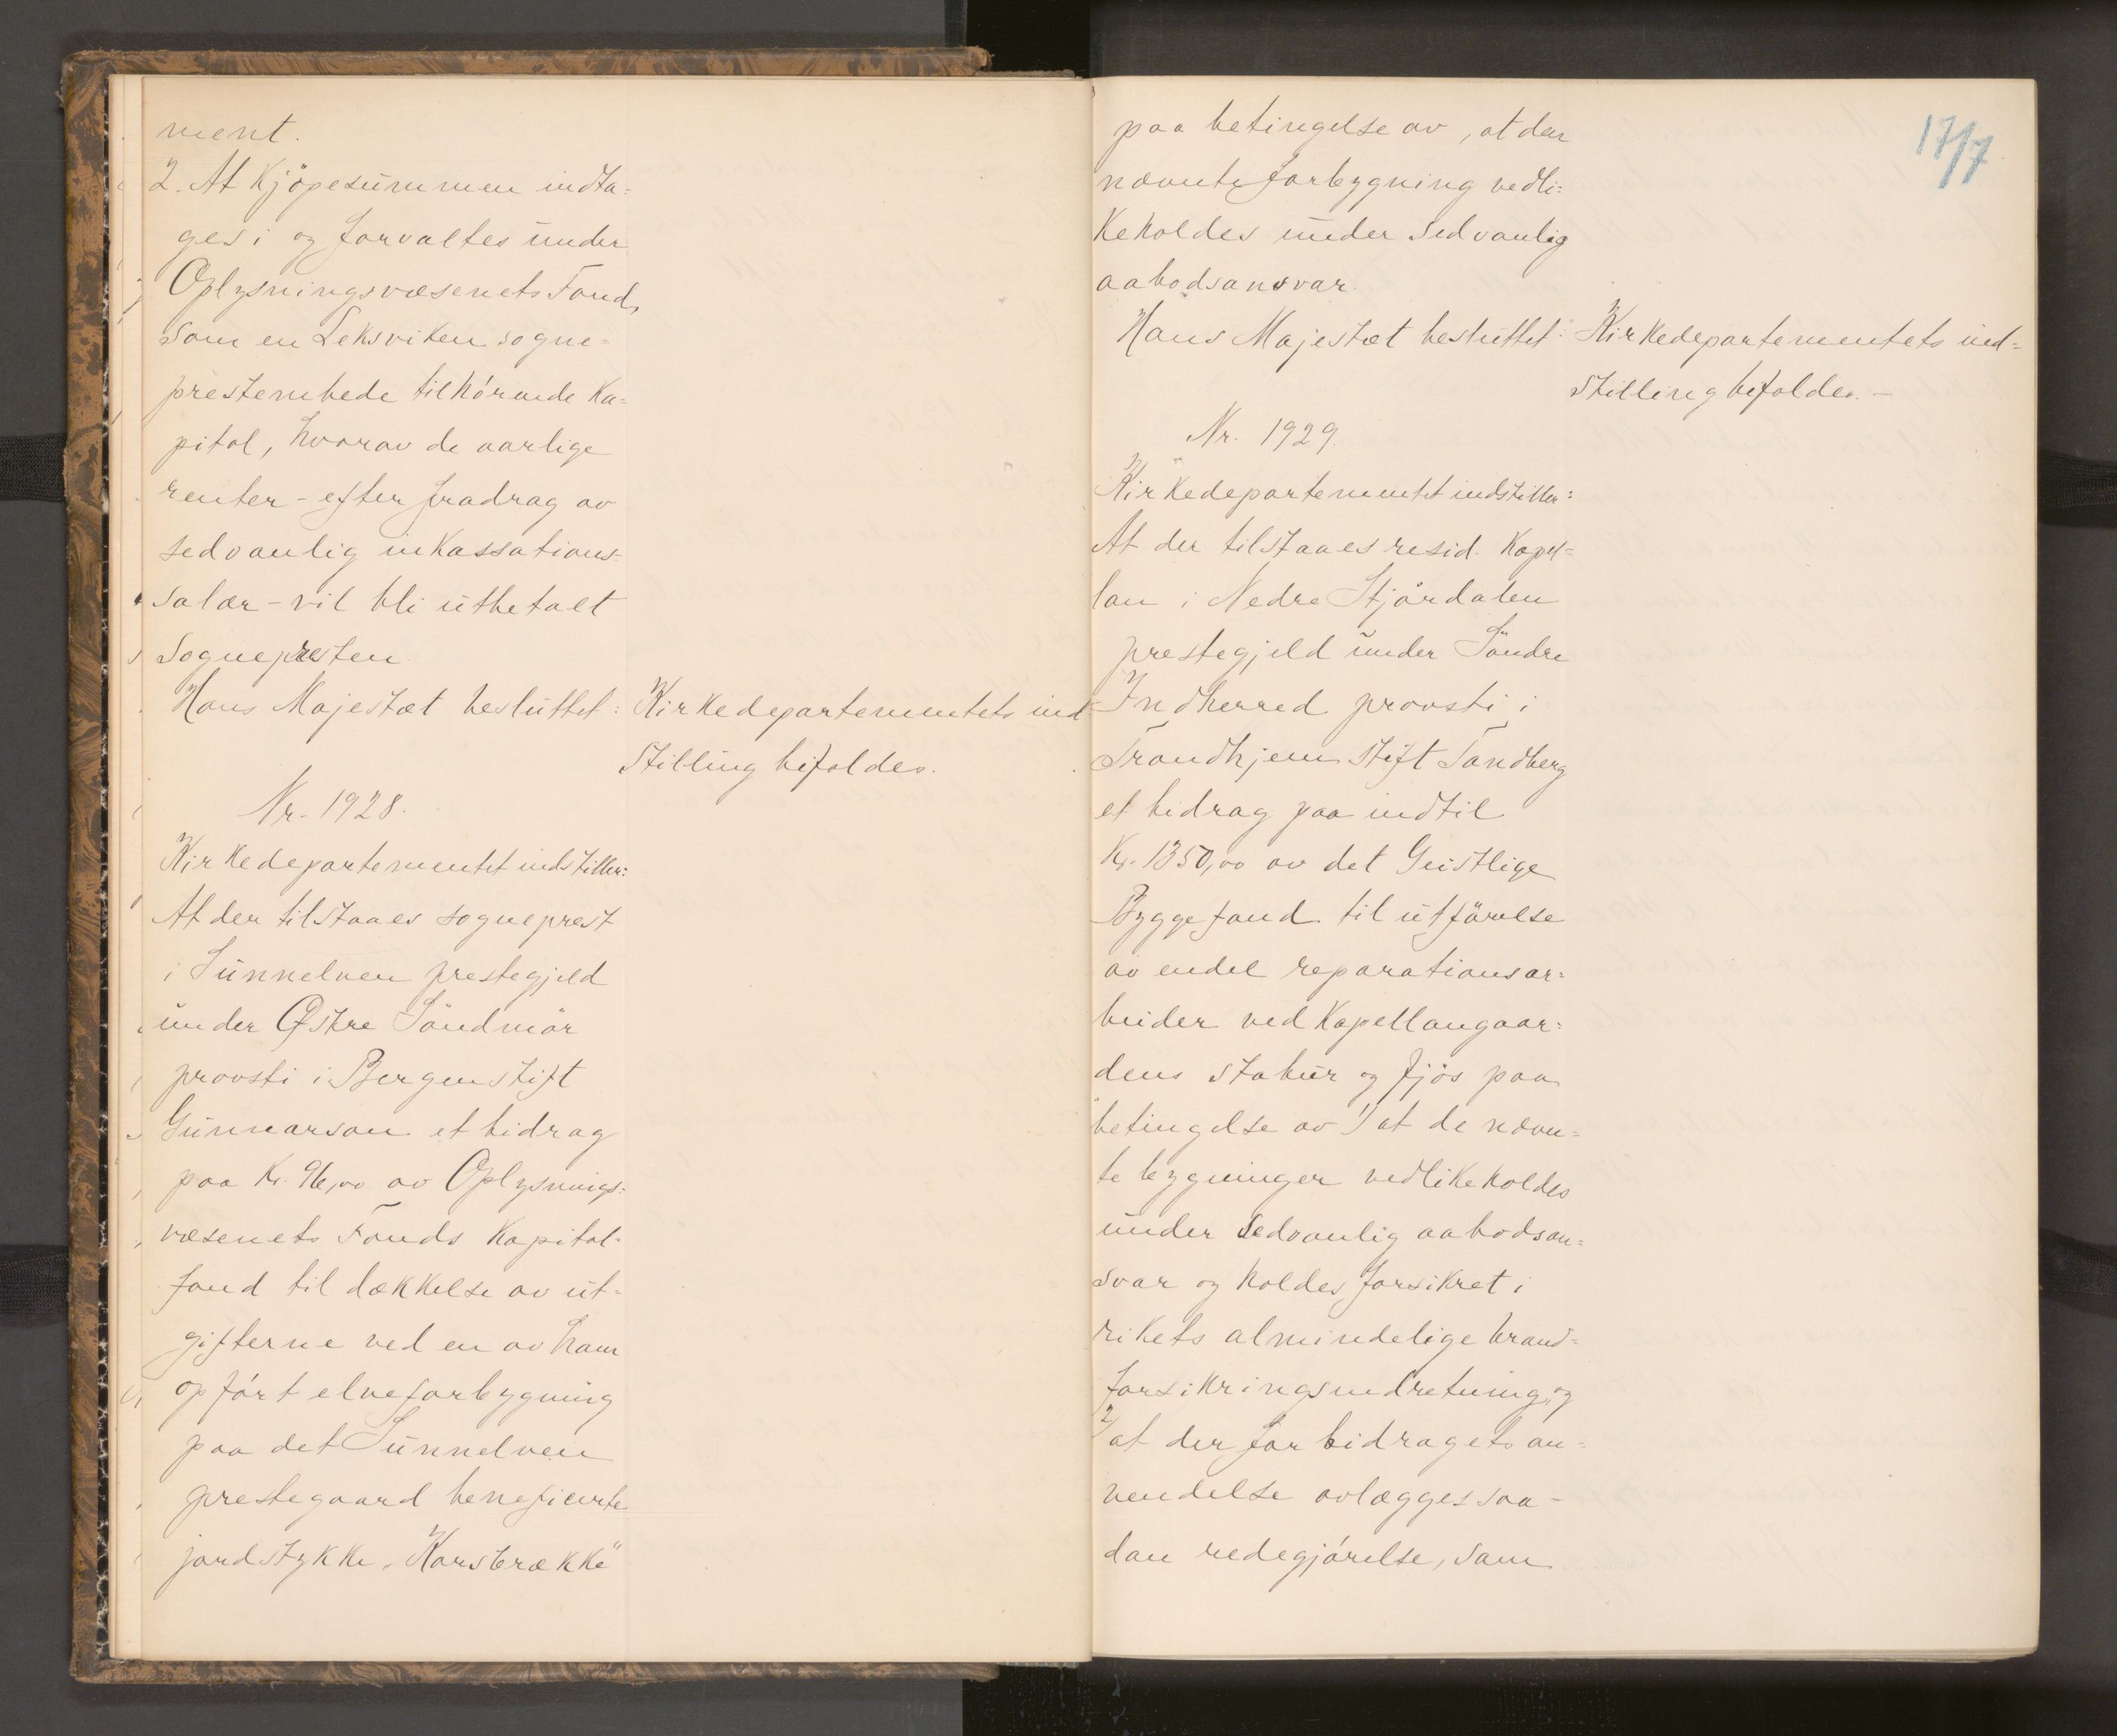 ment.
2. At Kjöpesummen indta=
ges i og forvaltes under
Oplysningsvæsenets Fond,
som en Leksviken sogne=
prestembede tilhörende Ka=
pital, hvorav de aarlige
renter - efter fradrag av
sedvanlig inkassations=
salær - vil bli utbetalt
Sognepresten
Hans Majestæt besluttet: Kirkedepartementets ind
stilling bifaldes.
Nr. 1928.
Kirkedepartementet indstiller:
At der tilstaaes sogneprest
i Sunnelven prestegjeld
under Østre Söndmör
provsti i Bergen stift
Gunnarson et bidrag
paa Kr. 96,00 av Oplysnings=
væsenets Fonds Kapital=
fond til dækkelse av ut=
gifterne ved en av ham
opfört elveforbygning
paa det Sunnelven
prestegaard beneficerte
jordstykke "Korsbrække"
17/7
paa betingelse av, at den
nævnte forbygning vedli=
keholdes under sedvanlig
aabodsansvar.
Hans Majestæt besluttet: Kirkedepartementets ind=
stilling bifaldes. -
Nr. 1929.
Kirkedepartementet indstiller:
At der tilstaaes resid. Kapel=
lan i Nedre Stjördalen
prestegjeld under Söndre
Indherred provsti i
Trondhjem stift Tandberg
et bidrag paa indtil
Kr. 1350,00 av det Geistlige
Byggefond til utförelse
av endel reparationsar=
beider ved Kapellangaar=
dens stabur og fjös paa
betingelse av 1) at de nævn=
te bygninger vedlikeholdes
under sedvanlig aabodsan=
svar og holdes forsikret i
rikets almindelige brand=
forsikringsindretning, og
2) at der for bidragets an=
vendelse avlægges saa-
dan redegjörelse, som